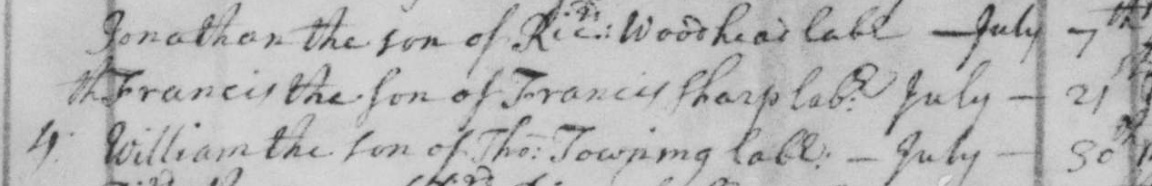 Jonathan the son of Ric:d: Woodhead labr — July 7th
Francis the son of Francis Sharp labr: July — 21st
4: William the son of Tho: Towning labr: — July — 30th